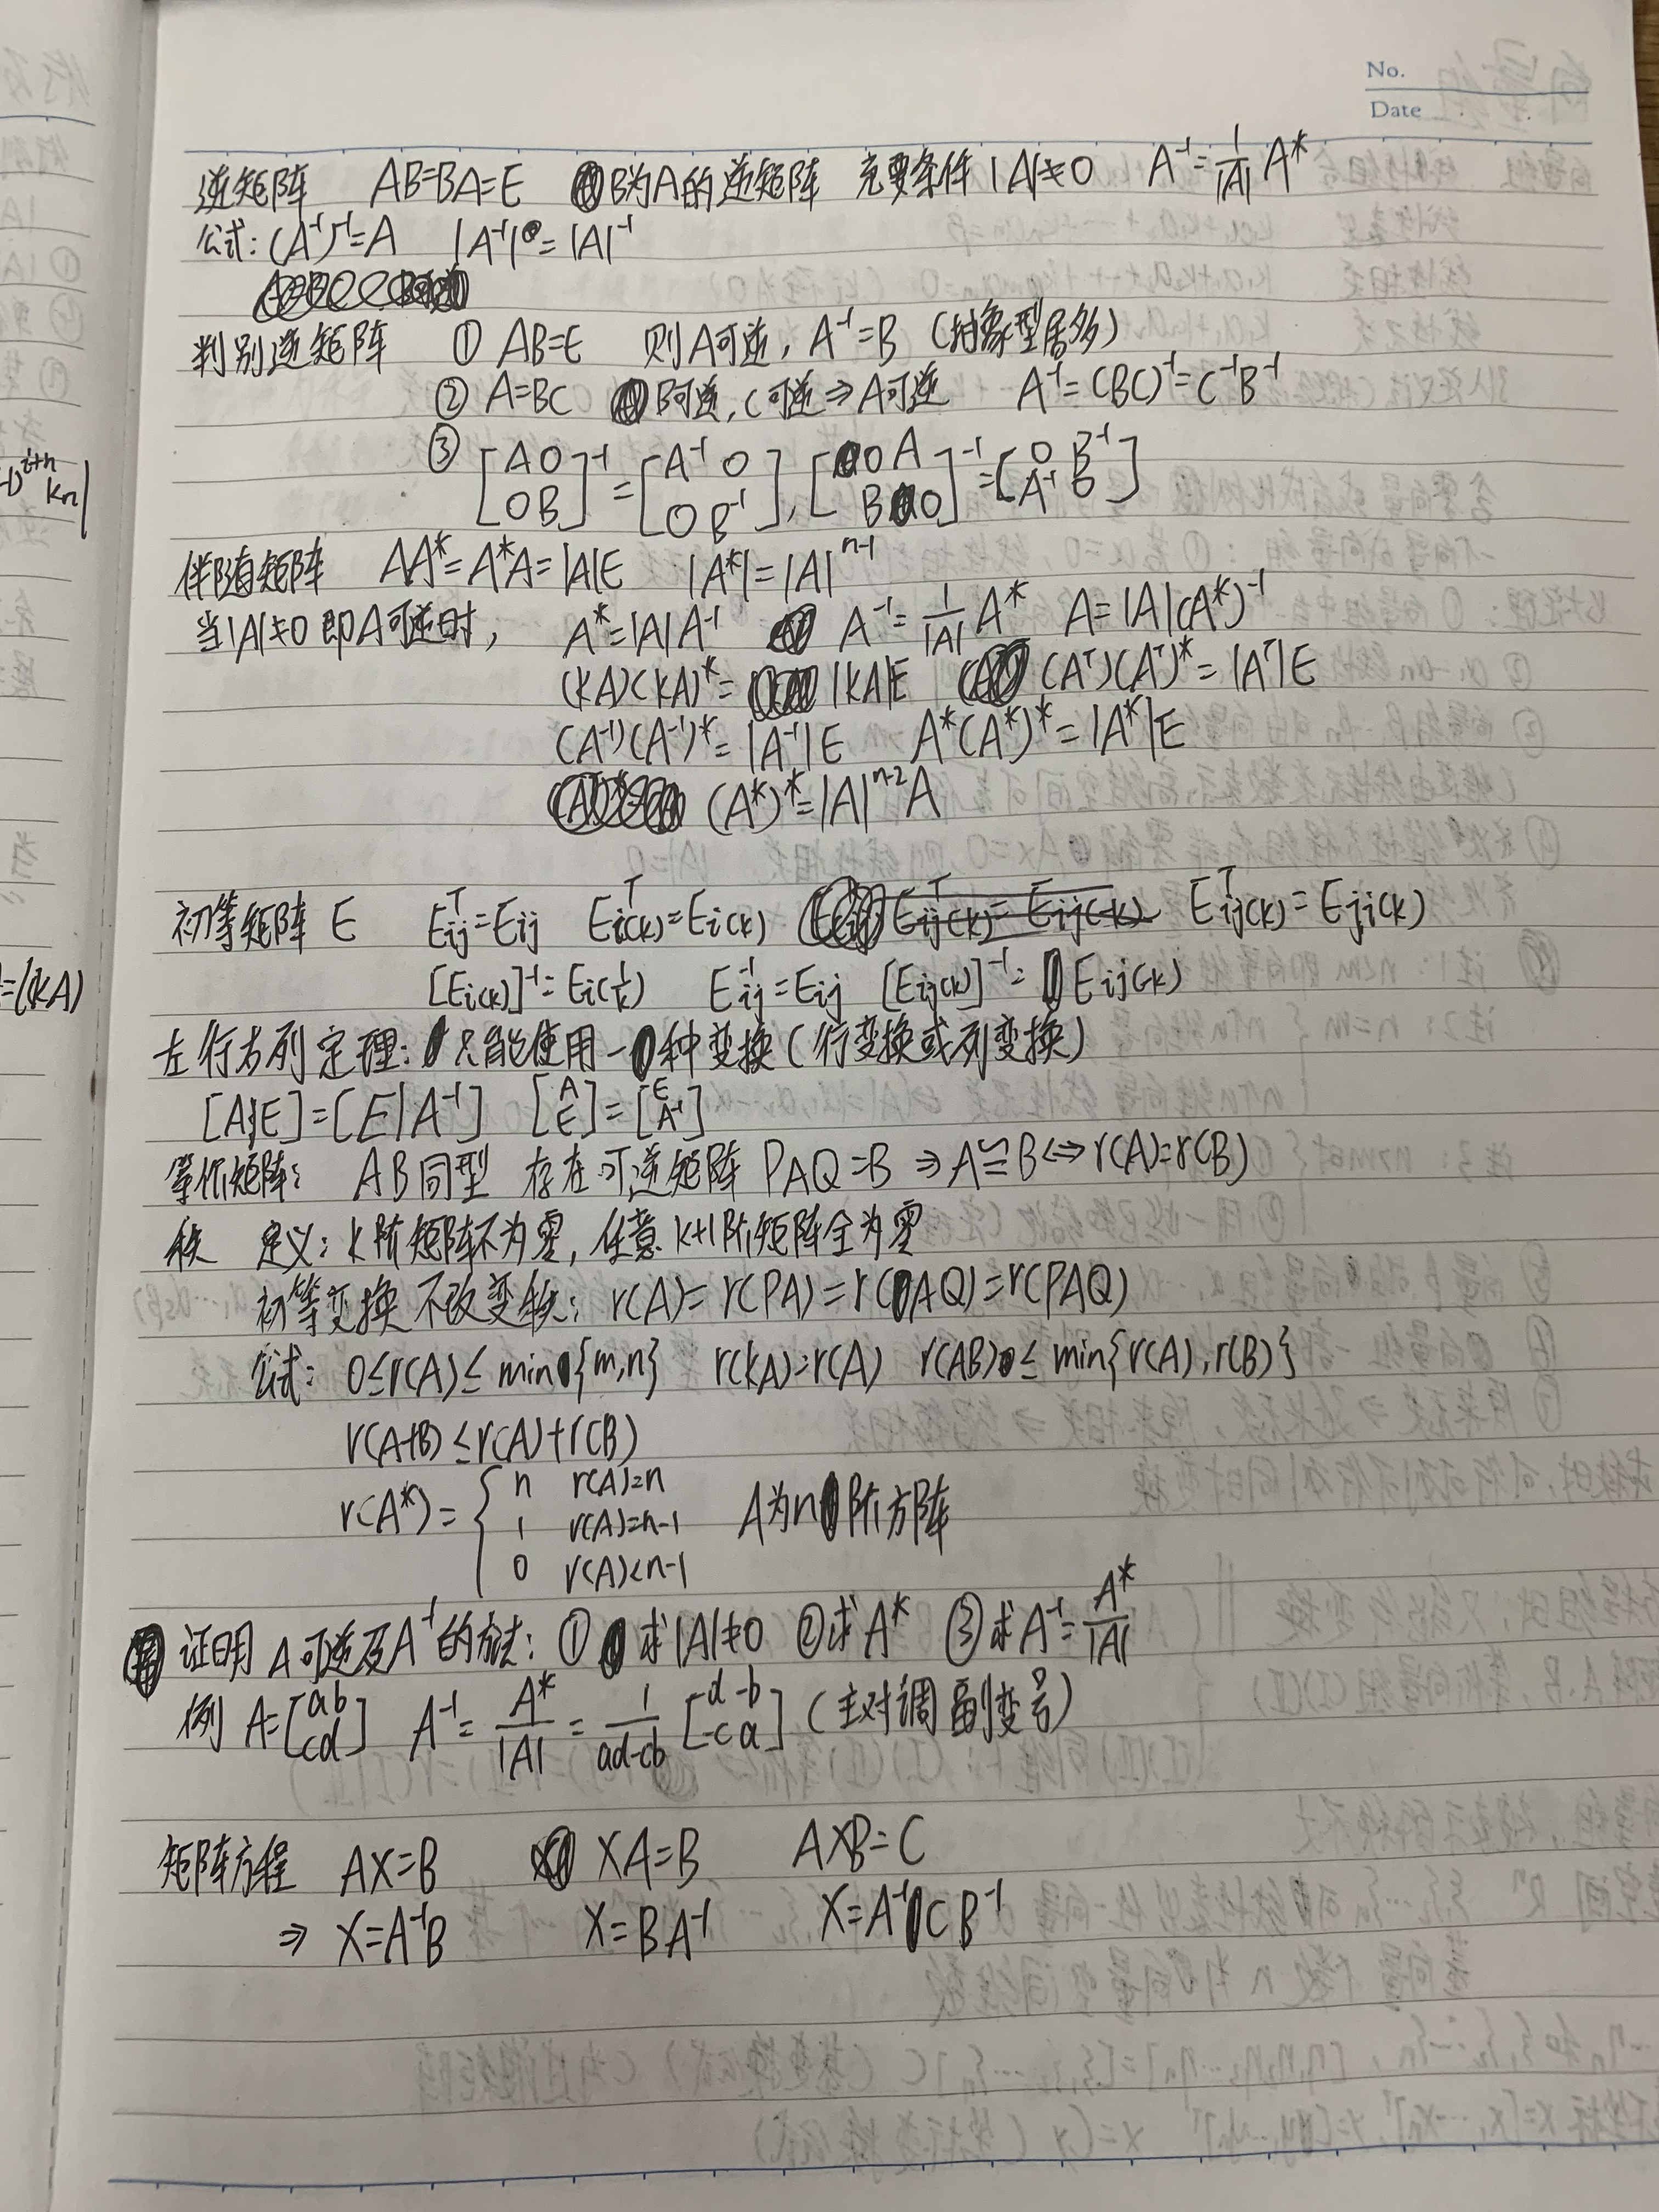 No.
Date
逆矩阵 AB=BA=E B为A的逆矩阵 充要条件 |A|≠0 A⁻¹=1/|A| A*
公式: (A⁻¹)⁻¹=A |A⁻¹|=|A|⁻¹
判别逆矩阵 ① AB=E 则A可逆, A⁻¹=B (抽象型居多)
② A=BC B可逆, C可逆⇒A可逆 A⁻¹=(BC)⁻¹=C⁻¹B⁻¹
③ [A O; O B]⁻¹=[A⁻¹ O; O B⁻¹], [O A; B O]⁻¹=[O B⁻¹; A⁻¹ O]
伴随矩阵 AA*=A*A=|A|E |A*|=|A|ⁿ⁻¹
当|A|≠0 即A可逆时, A*=|A|A⁻¹ A⁻¹=1/|A| A* A=|A|(A*)⁻¹
(kA)(kA)*=|kA|E (Aᵀ)(Aᵀ)*=|Aᵀ|E
(A⁻¹)(A⁻¹)*=|A⁻¹|E A*(A*)*=|A*|E
(A*)*=|A|ⁿ⁻²A
初等矩阵 E Eᵀij=Eij Eᵀi(k)=Ei(k) Eᵀij(k)=Eij(-k) Eᵀij(k)=Eji(k)
[Ei(k)]⁻¹=Ei(1/k) E⁻¹ij=Eij [Eij(k)]⁻¹=Eij(-k)
左行右列定理: 只能使用一种变换(行变换或列变换)
[A|E]=[E|A⁻¹] [A; E]=[E; A⁻¹]
等价矩阵: AB同型 存在可逆矩阵 PAQ=B ⇒A≌B⇔r(A)=r(B)
秩 定义: k阶矩阵不为零, 任意k+1阶矩阵全为零
初等变换不改变秩: r(A)=r(PA)=r(AQ)=r(PAQ)
公式: 0≤r(A)≤min{m,n} r(kA)=r(A) r(AB)≤min{r(A),r(B)}
r(A+B)≤r(A)+r(B)
r(A*)={ n r(A)=n
1 r(A)=n-1 A为n阶方阵
0 r(A)<n-1
证明A可逆及A⁻¹的方法: ① 求|A|≠0 ②求A* ③求A⁻¹=A*/|A|
例 A=[a b; c d] A⁻¹=A*/|A|=1/(ad-cb) [d -b; -c a] (主对调 副变号)
矩阵方程 AX=B XA=B AXB=C
⇒ X=A⁻¹B X=BA⁻¹ X=A⁻¹CB⁻¹